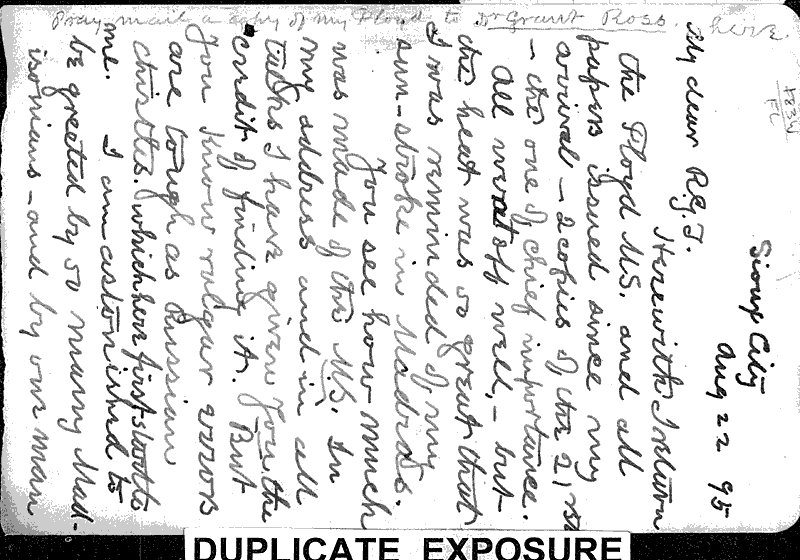 Pray mail a copy of my Floyd to Dr Grant Ross. here.
F83W
FL
Sioux City
Aug 22 95
My dear R.G.T.
Herewith I return
the Floyd MS. and all
papers issued since my
arrival – 2 copies of the 21st
– the one of chief importance.
All went off well, – but
the heat was so great that
I was reminded of my
sun-stroke in Madras.
You see how much
was made of the MS. In
my address and in all
talks I have given you the
credit of finding it. But
You know vulgar errors
are tough as Russian
thistles. which here first struck
me. I am astonished to
be greeted by so many Mad-
isonians – and by one man
DUPLICATE EXPOSURE